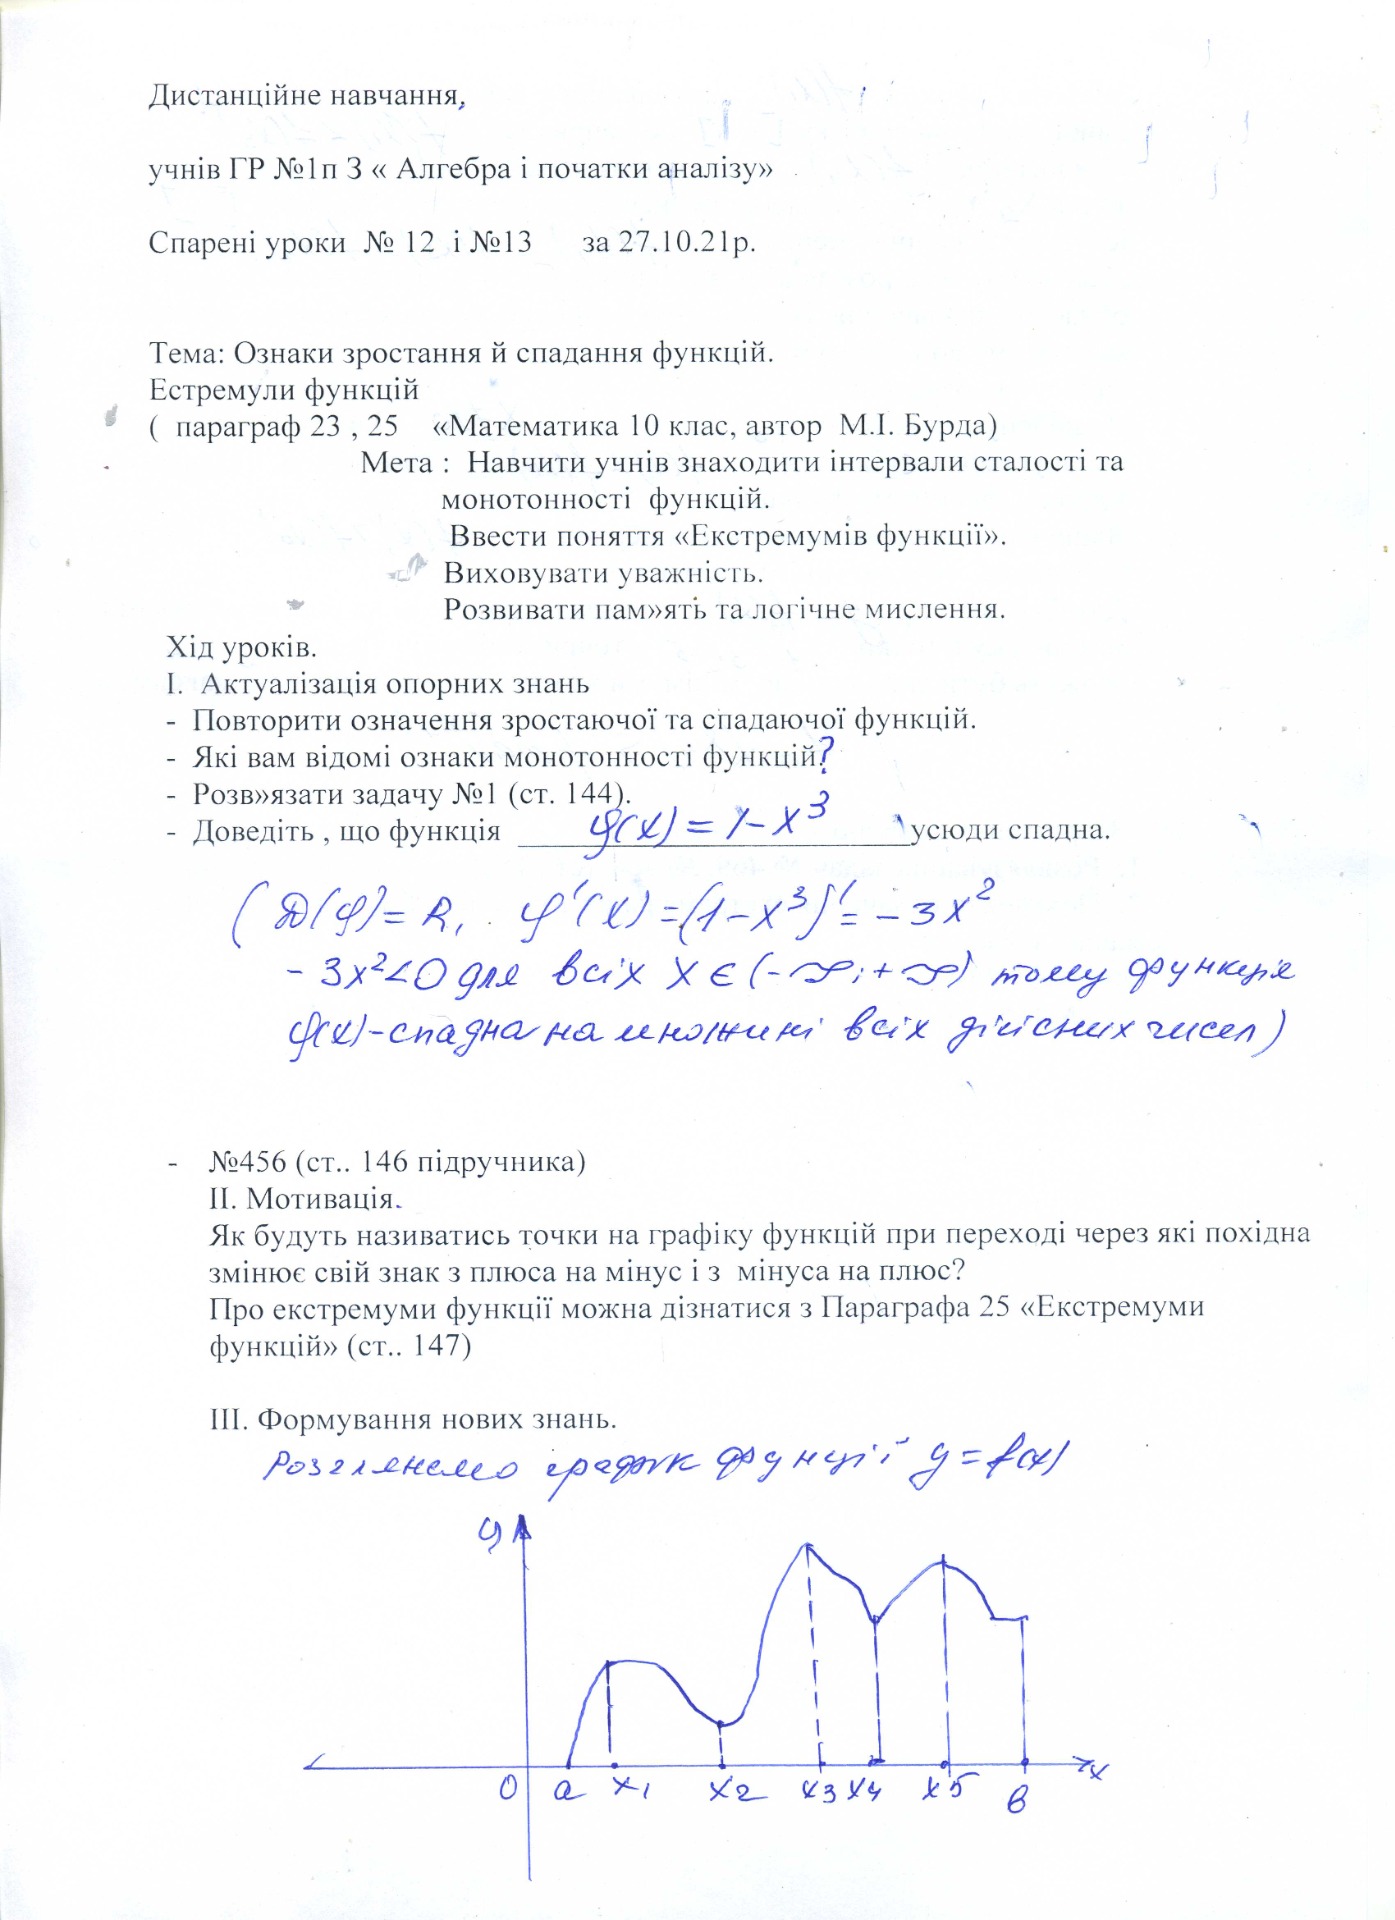 Дистанційне навчання,
учнів ГР №1п З « Алгебра і початки аналізу»
Спарені уроки № 12 і №13 за 27.10.21р.
Тема: Ознаки зростання й спадання функцій.
Естремули функцій
( параграф 23 , 25 «Математика 10 клас, автор М.І. Бурда)
Мета : Навчити учнів знаходити інтервали сталості та
монотонності функцій.
Ввести поняття «Екстремумів функції».
Виховувати уважність.
Розвивати пам»ять та логічне мислення.
Хід уроків.
І. Актуалізація опорних знань
- Повторити означення зростаючої та спадаючої функцій.
- Які вам відомі ознаки монотонності функцій?
- Розв»язати задачу №1 (ст. 144).
- Доведіть , що функція φ(x) = 1 - x³ усюди спадна.
( D(φ) = R, φ'(x) = (1 - x³)' = - 3x²
- 3x² < 0 для всіх x є (- ∞; + ∞) тому функція
φ(x) - спадна на множині всіх дійсних чисел )
- №456 (ст.. 146 підручника)
ІІ. Мотивація.
Як будуть називатись точки на графіку функцій при переході через які похідна
змінює свій знак з плюса на мінус і з мінуса на плюс?
Про екстремуми функції можна дізнатися з Параграфа 25 «Екстремуми
функцій» (ст.. 147)
ІІІ. Формування нових знань.
Розглянемо графік функції y = f(x)
y
0 a x1 x2 x3 x4 x5 в x